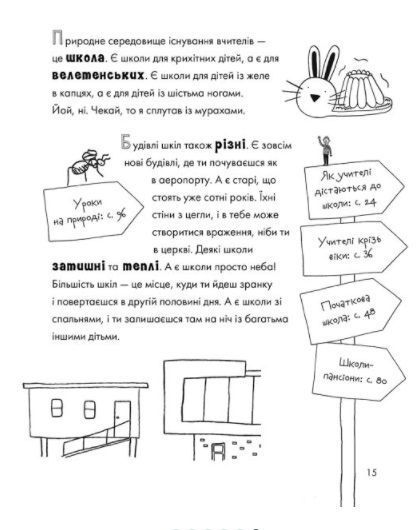 Природне середовище існування вчителів —
це школа. Є школи для крихітних дітей, а є для
велетенських. Є школи для дітей із желе
в капцях, а є для дітей із шістьма ногами.
Йой, ні. Чекай, то я сплутав із мурахами.
Будівлі шкіл також різні. Є зовсім
нові будівлі, де ти почуваєшся як
в аеропорту. А є старі, що
стоять уже сотні років. Їхні
стіни з цегли, і в тебе може
створитися враження, ніби ти
в церкві. Деякі школи
затишні та теплі. А є школи просто неба!
Більшість шкіл — це місце, куди ти йдеш зранку
і повертаєшся в другій половині дня. А є школи зі
спальнями, і ти залишаєшся там на ніч із багатьма
іншими дітьми.
Уроки
на природі: с. 96
Як учителі
дістаються до
школи: с. 24
Учителі крізь
віки: с. 36
Початкова
школа: с. 48
Школи-
пансіони: с. 80
15